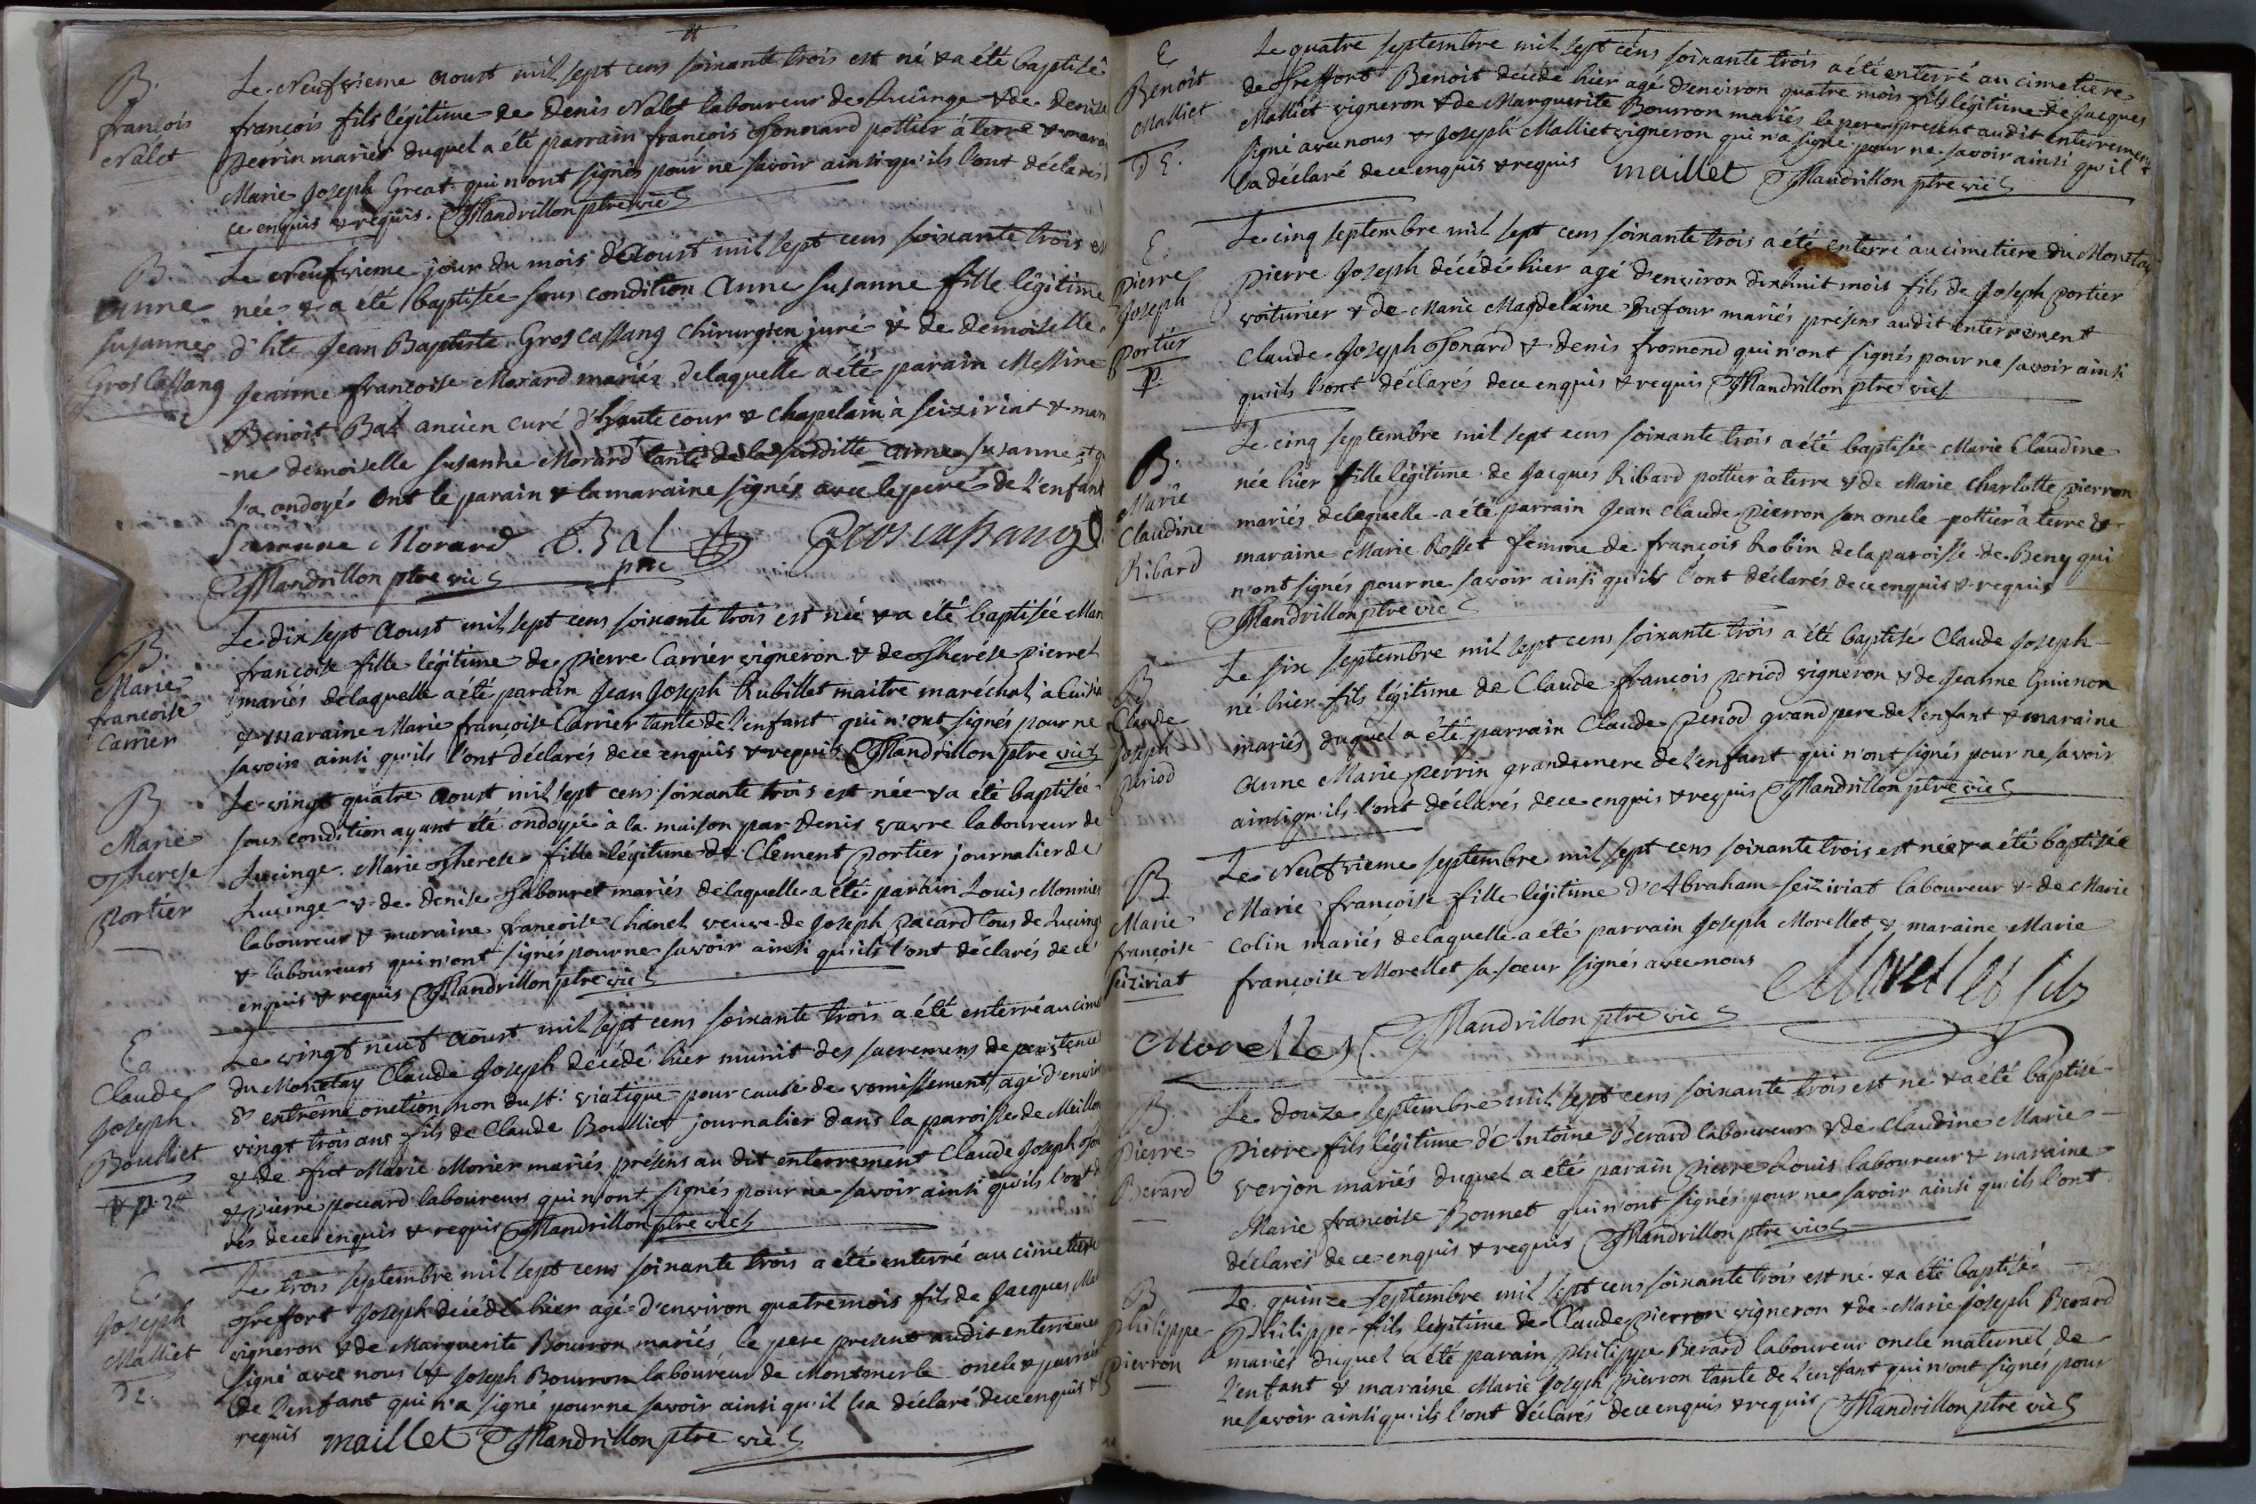 B.
françois
Nalet
Le Neufvieme aoust mil sept cens soixante trois est né & a été baptisé
françois fils légitime de Denis Nalet laboureur de Lucinge & de denise
perrin mariés duquel a été parrain françois Thonnard pottier à terre & marai
Marie Joseph Great qui n'ont signés pour ne savoir ainsi qu'ils l'ont déclarés
ce enquis & requis. Mandrillon ptre vic
B.
anne
susanne
Gros Cassang
Le Neufvieme jour du mois d'Aoust mil sept cens soixante trois est
née & a été baptisée sous condition anne susanne fille légitime
d'hte Jean Baptiste Gros cassang chirurgien juré & de demoiselle
Jeanne françoise Morard mariés delaquelle a été parain Messire
Benoit Bal ancien curé d'haute cour & chapelain à seiziriat & marai
-ne demoiselle susanne Morard tante de la susditte anne susanne
l'a ondoyé ont le parain & la maraine signés avec le pere de l'enfant
Susanne Morard B. Bal ptre Groscassang
Mandrillon ptre vic
B.
Marie
françoise
Carrier
Le dix sept aoust mil sept cens soixante trois est née & a été baptisée Marie
françoise fille légitime de pierre Carrier vigneron & de Therese pierret
mariés delaquelle a été parain Jean Joseph Rubillet maitre maréchal à Cuisia
& maraine Marie françoise Carrier tante de l'enfant qui n'ont signés pour ne
savoir ainsi qu'ils l'ont déclarés de ce enquis & requis Mandrillon ptre vic
B
Marie
Therese
Portier
Le vingt quatre aoust mil sept cens soixante trois est née & a été baptisée
sous condition ayant été ondoyée à la maison par denis vuvre laboureur de
Lucinge. Marie Therese fille légitime de Clement Portier journalier de
Lucinge & de denise Tabouret mariés delaquelle a été parrain Louis Monnier
laboureur & maraine françoise Chanel veuve de Joseph pacard tous de Lucinge
& laboureurs qui n'ont signés pour ne savoir ainsi qu'ils l'ont déclarés de ce
enquis & requis Mandrillon ptre vic
E.
Claude
Joseph
Boulliet
Le vingt neuf aoust mil sept cens soixante trois a été enterré au cime
du Monetay Claude Joseph décédé hier munit des sacremens de penitence
& extrême onction non du st: viatique pour cause de vomissement, agé d'envir
vingt trois ans fils de Claude Boulliet journalier dans la paroisse de Meillon
& de fut Marie Morier mariés, présens au dit enterrement Claude Joseph
& pierre pouard laboureurs qui n'ont signés pour ne savoir ainsi qu'ils l'ont d
rés de ce enquis & requis Mandrillon ptre vic
E.
Joseph
Malliet
Le trois septembre mil sept cens soixante trois a été enterré au cimetiere
Treffort Joseph décédé hier agé d'environ quatre mois fils de Jacques Mal
vigneron & de Marguerite Bourron mariés, le pere present audit enterremen
signé avec nous & Joseph Bourron laboureur de Montmerle oncle & parrain
de l'enfant qui n'a signé pour ne savoir ainsi qu'il l'a déclaré de ce enquis &
requis maillet Mandrillon ptre vic
E
Benoit
Malliet
Le quatre septembre mil sept cens soixante trois a été enterré au cimetiere
de Treffort Benoit décédé hier agé d'environ quatre mois fils légitime de Jacques
Malliet vigneron & de Marguerite Bourron mariés le pere present audit enterrement
signé avec nous & Joseph Malliet vigneron qui n'a signé pour ne savoir ainsi qu'il
l'a déclaré de ce enquis & requis maillet Mandrillon ptre vic
E.
Pierre
Joseph
Portier
P.
Le cinq septembre mil sept cens soixante trois a été enterré au cimetiere du Monetay
pierre Joseph décédé hier agé d'environ dixhuit mois fils de Joseph portier
voiturier & de Marie Magdelaine Dufour mariés présens audit enterrement
Claude Joseph Thonard & denis fromond qui n'ont signés pour ne savoir ainsi
qu'ils l'ont déclarés de ce enquis & requis Mandrillon ptre vic
B.
Marie
Claudine
Ribard
Le cinq septembre mil sept cens soixante trois a été baptisée Marie Claudine
née hier fille légitime de Jacques Ribard pottier à terre & de Marie Charlotte pierron
mariés delaquelle a été parrain Jean Claude pierron son oncle pottier à terre &
maraine Marie Rosset femme de françois Robin de la paroisse de Beny qui
n'ont signés pour ne savoir ainsi qu'ils l'ont déclarés de ce enquis & requis
Mandrillon ptre vic
B
Claude
Joseph
Period
Le six septembre mil sept cens soixante trois a été baptisé Claude Joseph
né hier fils légitime de Claude françois period vigneron & de Jeanne Guienon
mariés duquel a été parrain Claude Period grand pere de l'enfant & maraine
anne Marie perrin grandemere de l'enfant qui n'ont signés pour ne savoir
ainsi qu'ils l'ont déclarés de ce enquis & requis Mandrillon ptre vic
B
Marie
françoise
seiziriat
Le Neufvieme septembre mil sept cens soixante trois est née & a été baptisée
Marie françoise fille légitime d'Abraham seiziriat laboureur & de Marie
Colin mariés delaquelle a été parrain Joseph Morellet & maraine Marie
françoise Morellet sa soeur signés avec nous Morellet fils
Morellet Mandrillon ptre vic
B.
Pierre
Berard
Le douze septembre mil sept cens soixante trois est né & a été baptisé
Pierre fils légitime d'Antoine Berard laboureur & de Claudine Marie
verjon mariés duquel a été parain Pierre Louis laboureur & maraine
Marie françoise Bounet qui n'ont signés pour ne savoir ainsi qu'ils l'ont
déclarés de ce enquis & requis Mandrillon ptre vic
B
Philippe
Pierron
Le quinze septembre mil sept cens soixante trois est né & a été baptisé
Philippe fils légitime de Claude pierron vigneron & de Marie Joseph Berard
mariés duquel a été parain philippe Berard laboureur oncle maternel de
l'enfant & maraine Marie Joseph pierron tante de l'enfant qui n'ont signés pour
ne savoir ainsi qu'ils l'ont déclarés de ce enquis & requis Mandrillon ptre vic